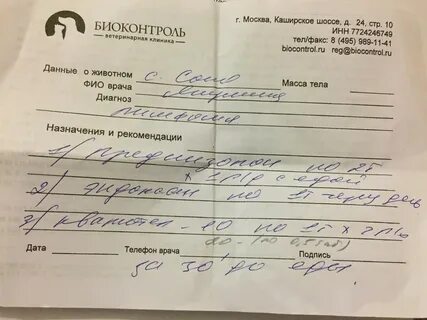 БИОКОНТРОЛЬ
ветеринарная клиника
г. Москва, Каширское шоссе, д. 24, стр. 10
ИНН 7724246749
тел/факс: 8 (495) 989-11-41
biocontrol.ru reg@biocontrol.ru
Данные о животном с. Соня Масса тела
ФИО врача
Диагноз лимфома
Назначения и рекомендации
1/ преднизолон по 2т
x 1 р/р с едой
2/ эндоксан по 1т через день
3/ квамател - 10 по 1т x 2 р/р
20 - (по 0,5 таб)
Дата Телефон врача Подпись
за 30' до еды